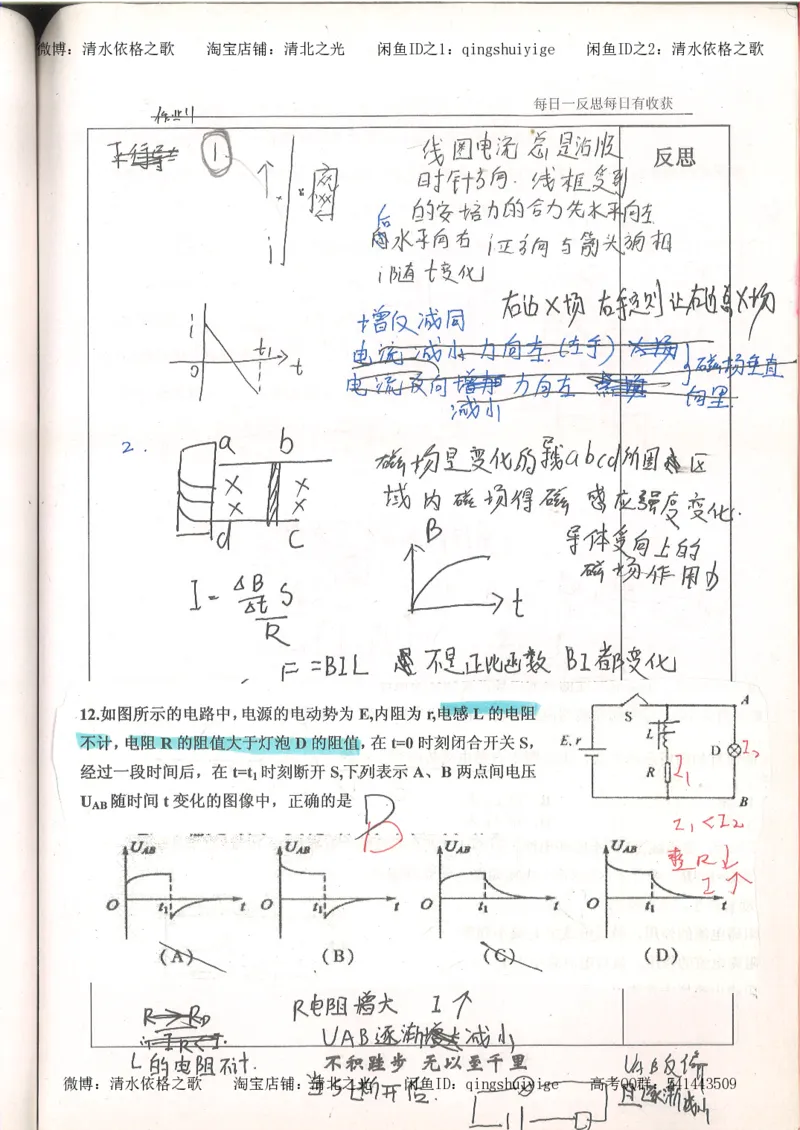 微博：清水依格之歌 淘宝店铺：清北之光 闲鱼ID之1：qingshuiyige 闲鱼ID之2：清水依格之歌
作业11
每日一反思每日有收获
反思
1
i
线圈电流总是沿顺
时针方向．线框受到
的安培力的合力先水平向左
后水平向右 i正方向与箭头方向相
i随t变化
右边X场 右手定则 让右边为X场
增反减同
i
0
t₁
t
电流减小 力向左（左手）
电流反向 力向左
减小
磁场垂直
向里
2.
a b
X X
X X
d c
磁场是变化的 导线abcd所围区
域内磁场得磁感应强度变化．
导体受向上的
磁场作用力
B
t
I = ΔB/Δt S / R
F = BIL 不是正比函数 BI都变化
12.如图所示的电路中，电源的电动势为 E,内阻为 r,电感 L 的电阻
不计，电阻 R 的阻值大于灯泡 D 的阻值，在 t=0 时刻闭合开关 S，
经过一段时间后，在 t=t₁ 时刻断开 S,下列表示 A、B 两点间电压
U_AB 随时间 t 变化的图像中，正确的是 B
S
A
E, r
L
R
D
B
I₁
I₂
I₁<I₂
R↓
I↑
U_AB U_AB U_AB U_AB
O t₁ t O t₁ t O t₁ t O t₁ t
(A) (B) (C) (D)
R→R_D
L的电阻不计．
R电阻增大 I↑
UAB逐渐减小
不积跬步 无以至千里
当S断开后．
UAB反倚
且逐渐减小
微博：清水依格之歌 淘宝店铺：清北之光 闲鱼ID：qingshuiyige 高考QQ群：541443509